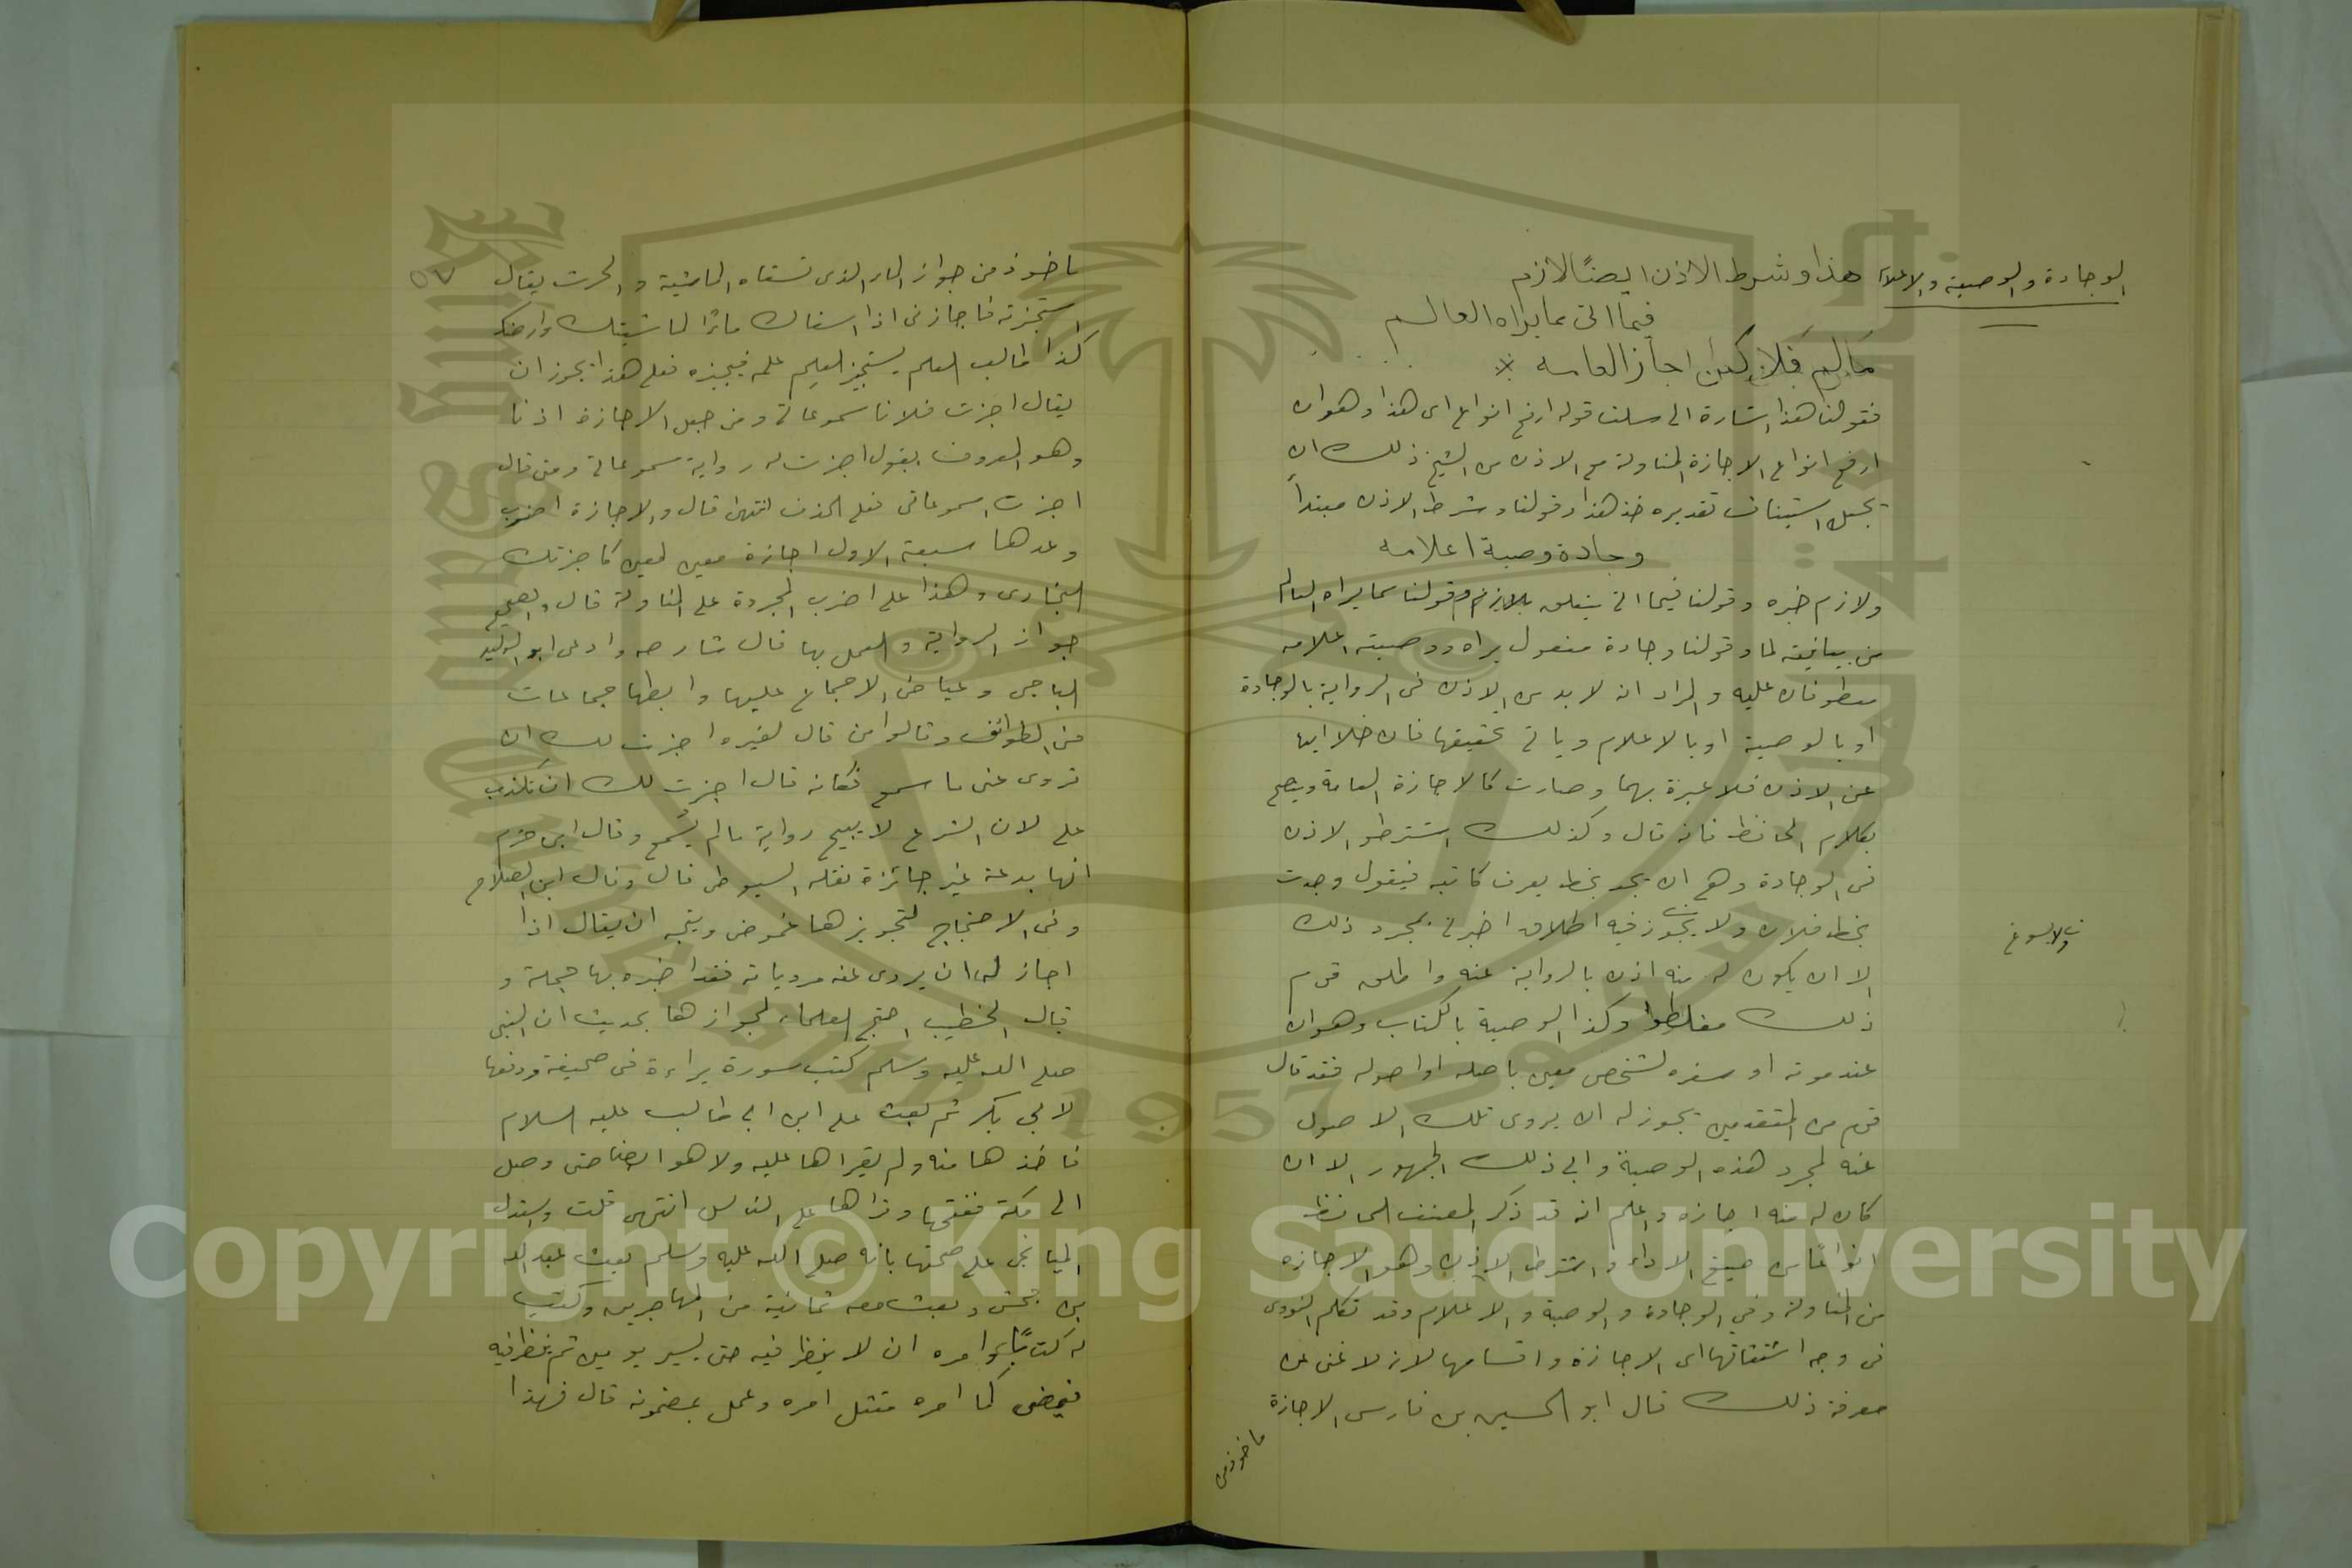 الوجادة والوصية والاعلام
هذا وشرط الاذن ايضًا لازم
فيما اتى مما يراه العالم
مالم فلا كمن اجاز العامه *
فقولنا هذا اشارة الى سلف قوله ارفع انواع اى هذا وهو ان
ارفع انواع الاجازة المناولة مع الاذن من الشيخ ذلك ان
تجعل استيناف تقديره خذ هذا وقولنا وشرط الاذن مبتدأ
وجادة وصية اعلامه
ولازم خبره وقولنا فيما اتى يتعلق بلازم وقولنا مما يراه العالم
من بيانية لما وقولنا وجادة مفعول يراه ووصية اعلامه
معطوفان عليه والمراد انه لا بد من الاذن فى الرواية بالوجادة
او بالوصية او بالاعلام وياتى تحقيقها فان خلا ايها
عن الاذن فلا عبرة بهما وصارت كالاجازة العامة ويتضح
بكلام الحافظ فانه قال وكذلك اشترطوا الاذن
فى الوجادة وهى ان يجد بخط يعرف كاتبه فيقول وجدت
بخط فلان ولا يجوز فيه اطلاق اخبرنى بمجرد ذلك
ولا يسوغ
الا ان يكون له منه اذن بالرواية عنه واطلق قوم
ذلك فغلطوا وكذا الوصية بالكتاب وهو ان
عند موته او سفره لشخص معين باصله او اصوله فقد قال
قوم من المتقدمين يجوز له ان يروى تلك الاصول
عنه لمجرد هذه الوصية وابى ذلك الجمهور الا ان
كان له منه اجازه واعلم انه قد ذكر المصنف الحافظ
انواعًا من صيغ الاداء واشترط الاذن وهو الاجازه
من المناولة وفي الوجادة والوصية والاعلام وقد تكلم النووى
فى وجه اشتقاقها اى الاجازة واقسامها لانه لا غنى عن
معرفة ذلك قال ابو الحسين بن فارس الاجازة
ماخوذ من
٥٧
ماخوذ من جواز الماء الذى تسقاه الماشية والحرث يقال
استجزته فاجازنى اذا اسقاك ماءًا لماشيتك وارضك
كذا طالب العلم يستجيز العالم علمه فيجيزه فعلى هذا يجوز ان
يقال اجزت فلانا سموعاتى ومن جعل الاجازة اذنا
وهو المعروف يقول اجزت له رواية سموعاتى ومتى قال
اجزت سموعاتى فعلى الحذف انتهى قال والاجازة اضرب
وعدها سبعة الاول اجازة معين لمعين كاجزتك
البخارى وهذا على اضرب المجردة على المناولة قال والصحيح
جواز الرواية والعمل بها قال شارحه وادعى ابو الوليد
الباجى وعياض الاجماع عليها وابطها جماعات
من الطوائف وقالوا من قال لغيره اجزت لك ان
تروى عنى ما سمع فكانه قال اجزت لك ان تكذب
على لان الشرع لا يبيح رواية مالم يسمع وقال ابن حزم
انها بدعة غير جائزة نقله السيوطى قال وقال ابن الصلاح
وفى الاحتجاج لتجويزها غموض ويتجه ان يقال اذا
اجاز له ان يروى عنه مروياته فقد اخبره بها جملة و
قال الخطيب احتج العلماء لجوازها بحديث ان النبى
صلى الله عليه وسلم كتب سورة براءة فى صحيفة ودفعها
لابي بكر ثم بعث على ابن ابى طالب عليه السلام
فاخذها منه ولم يقراها عليه ولا هو ايضا حتى وصل
الى مكة ففتحها وقراها على الناس انتهى قلت واستدل
الميانجى على صحتها بانه صلى الله عليه وسلم بعث عبد الله
بن جحش وبعث معه ثمانية من المهاجرين وكتب
له كتابًا وامره ان لا ينظر فيه حتى يسير يومين ثم ينظر فيه
فيمضى لما امره فتثل امره وعمل بمضمونه قال فهذا
Copyright © King Saud University
1957